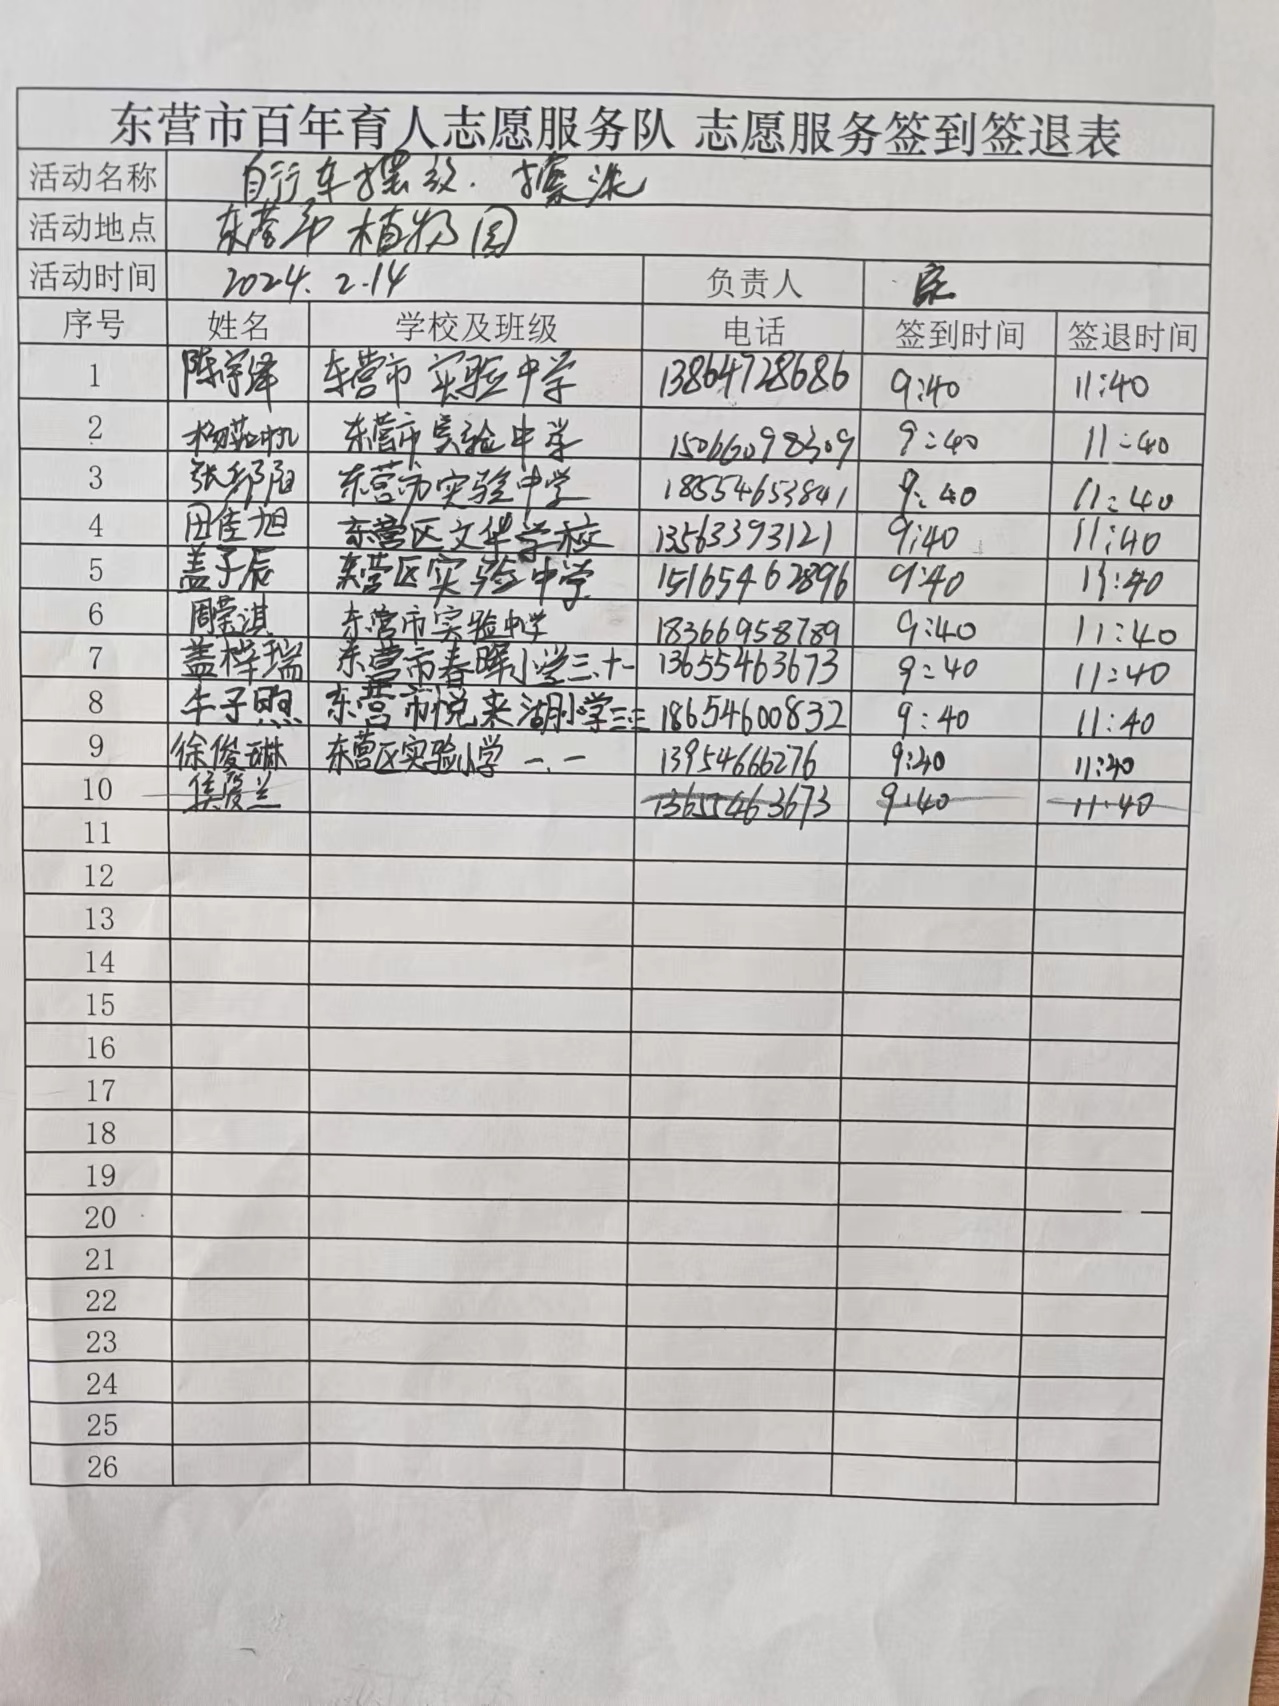 东营市百年育人志愿服务队 志愿服务签到签退表
活动名称 自行车摆放. 擦洗
活动地点 东营市植物园
活动时间 2024.2.14 负责人
序号 姓名 学校及班级 电话 签到时间 签退时间
1 陈宇泽 东营市实验中学 13864728686 9:40 11:40
2 东营市实验中学 15066098309 9:40 11:40
3 东营市实验中学 18554653841 9:40 11:40
4 田佳旭 东营区文华学校 13563393121 9:40 11:40
5 盖子辰 东营区实验中学 15165462896 9:40 11:40
6 周荣淇 东营市实验中学 18366958789 9:40 11:40
7 盖桦瑞 东营市春晖小学三.十一 13655463673 9:40 11:40
8 牛子煦 东营市悦来湖小学三.三 18654600832 9:40 11:40
9 徐俊琳 东营区实验小学 一.一 13954666276 9:40 11:40
10 侯爱兰 13655463673 9:40 11:40
11
12
13
14
15
16
17
18
19
20
21
22
23
24
25
26